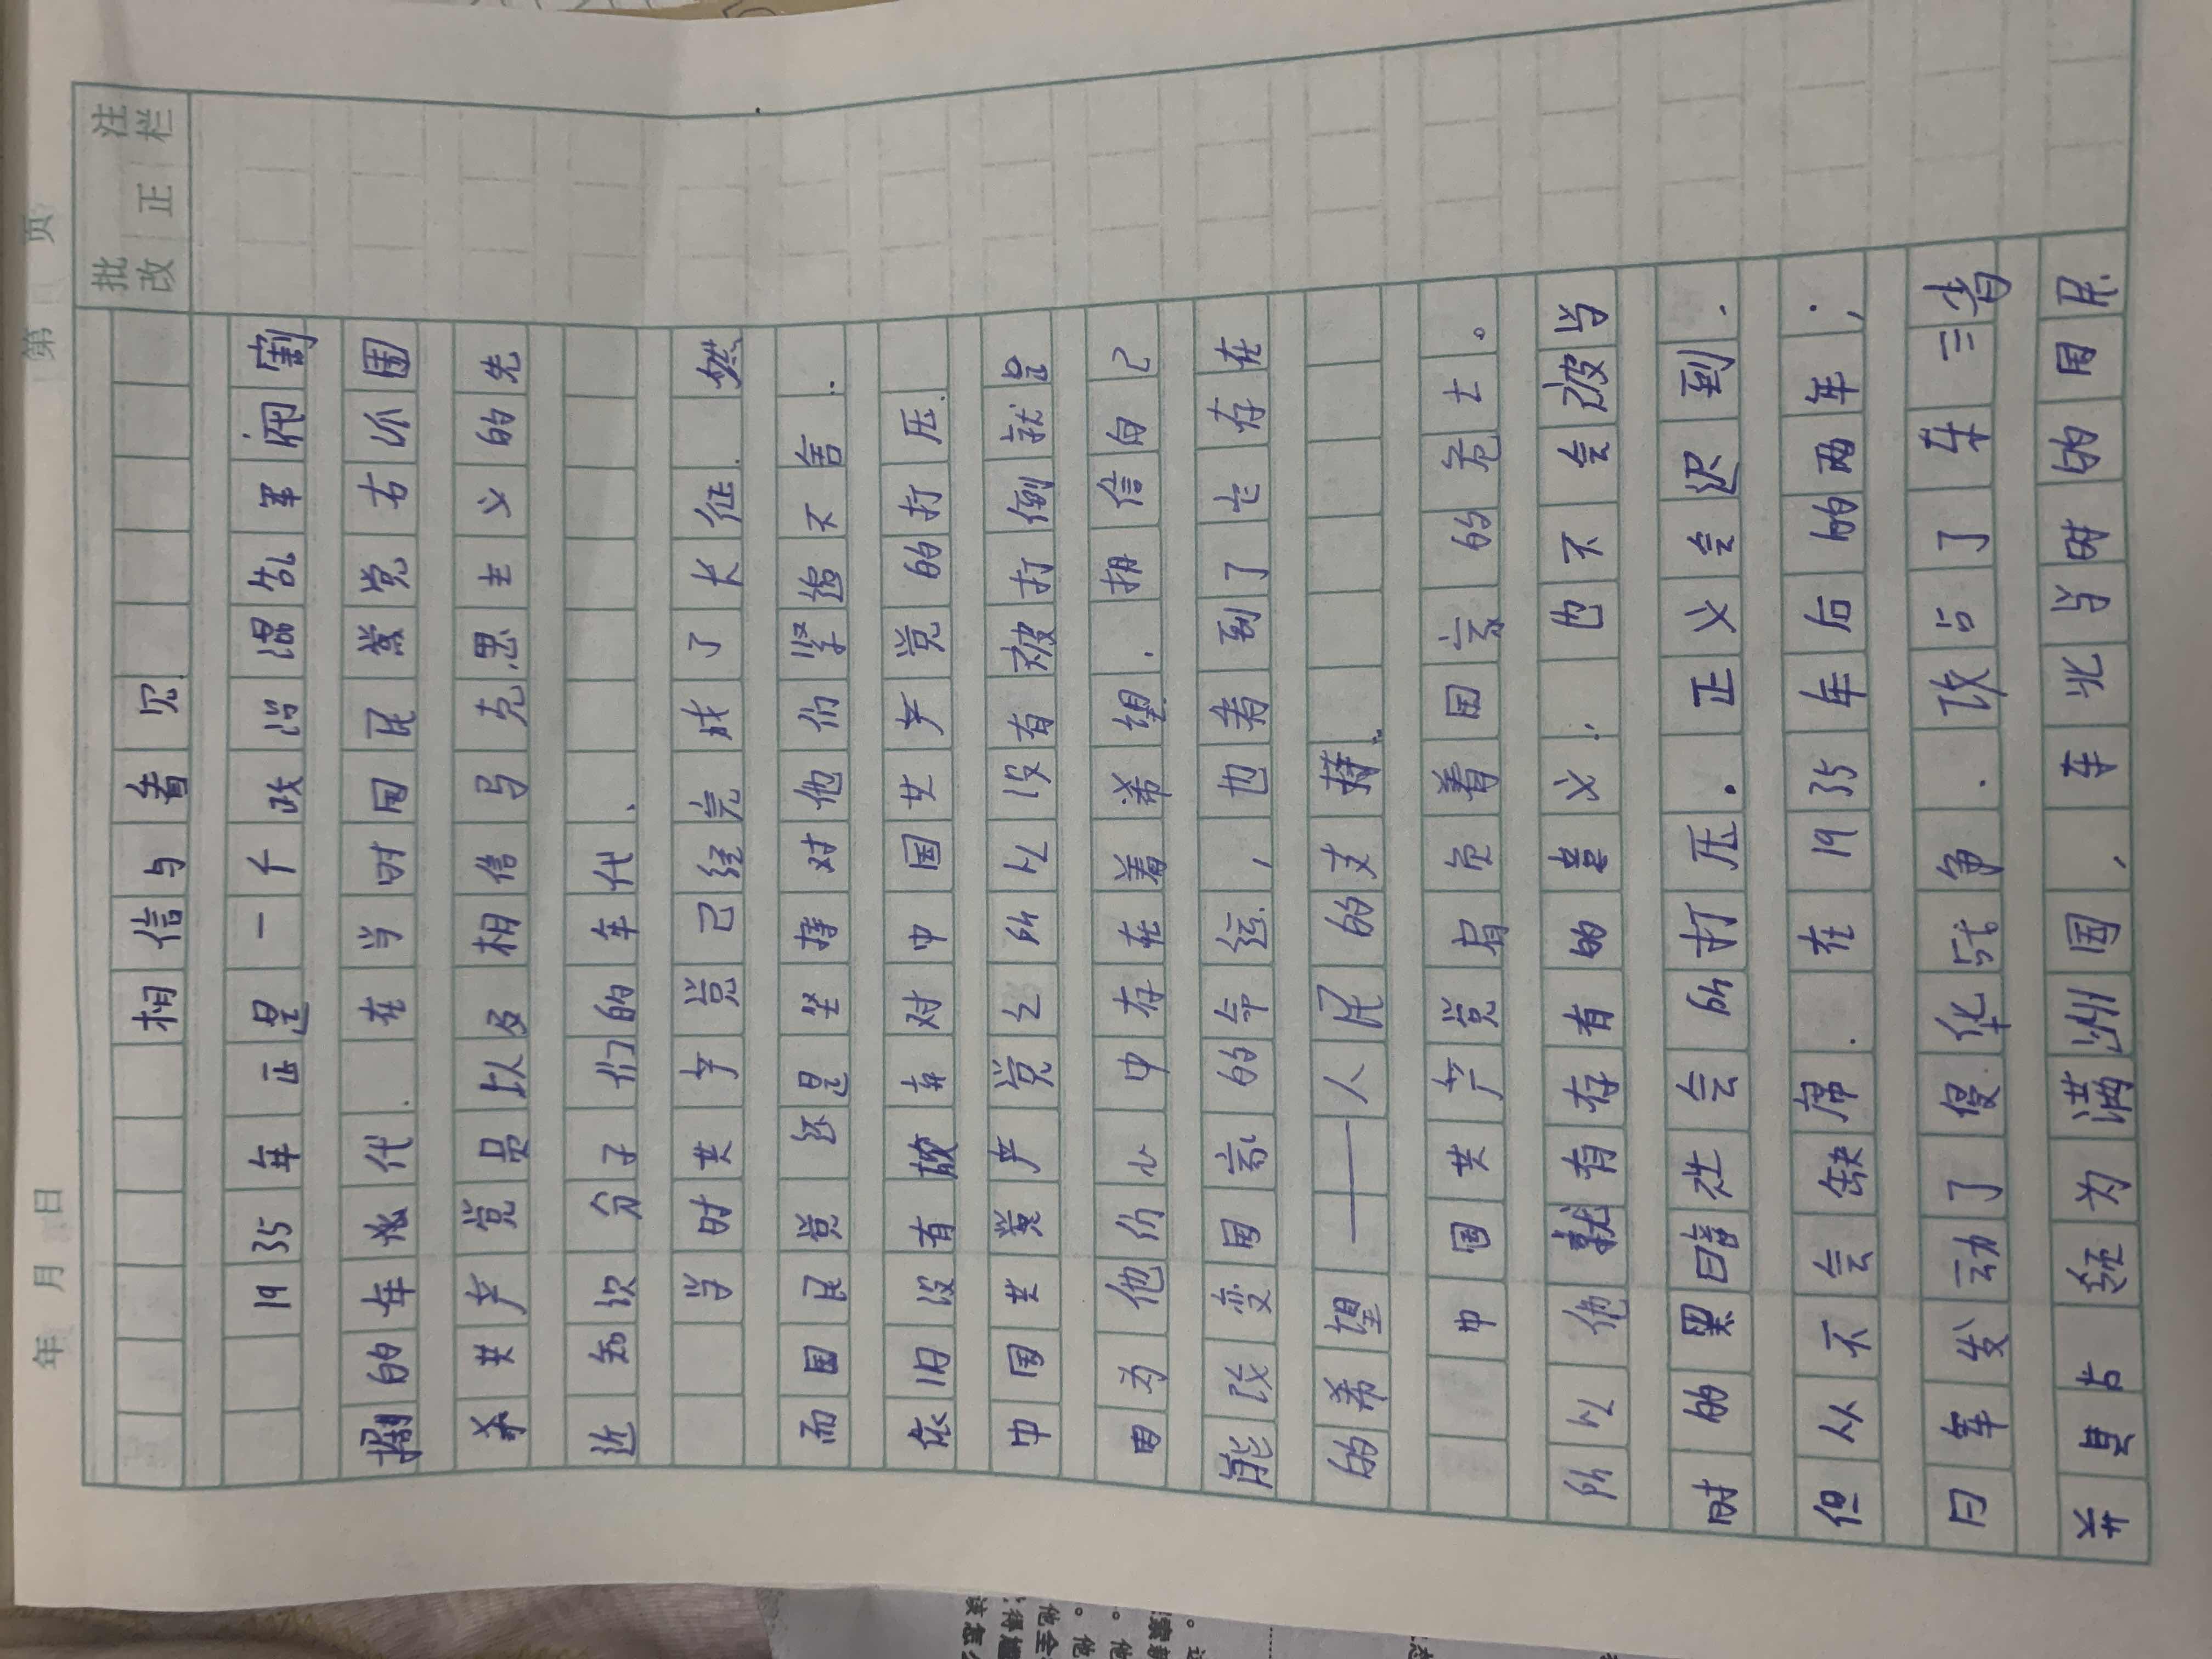 年 月 日 第 页
批 注
改 正 栏
相信与看见
1935年正是一个政治混乱军阀割
的年代.在当时国民党右围
杀共产党员以及相信马克思主义的先
近知识分子们的年代、
当时共产党已经完成了长征.然
而国民党还是坚持对他们紧追不舍.
依旧没有放弃对中国共产党的打压.
中国共产党之所以没有被打倒就是
因为他们心中存在着希望.相信自己
能改变国家的命运.，也看到了它存在
的希望——人民的支持.
中国共产党肩负着国家的危亡。
所以他就有存有的意义.也不会被当
时的黑暗社会所打压.正义会迟到.
但从不会缺席.在1935年后的两年;
日军发动了侵华战争.攻占了东三省
并且占为满洲国、东北与时的国民.